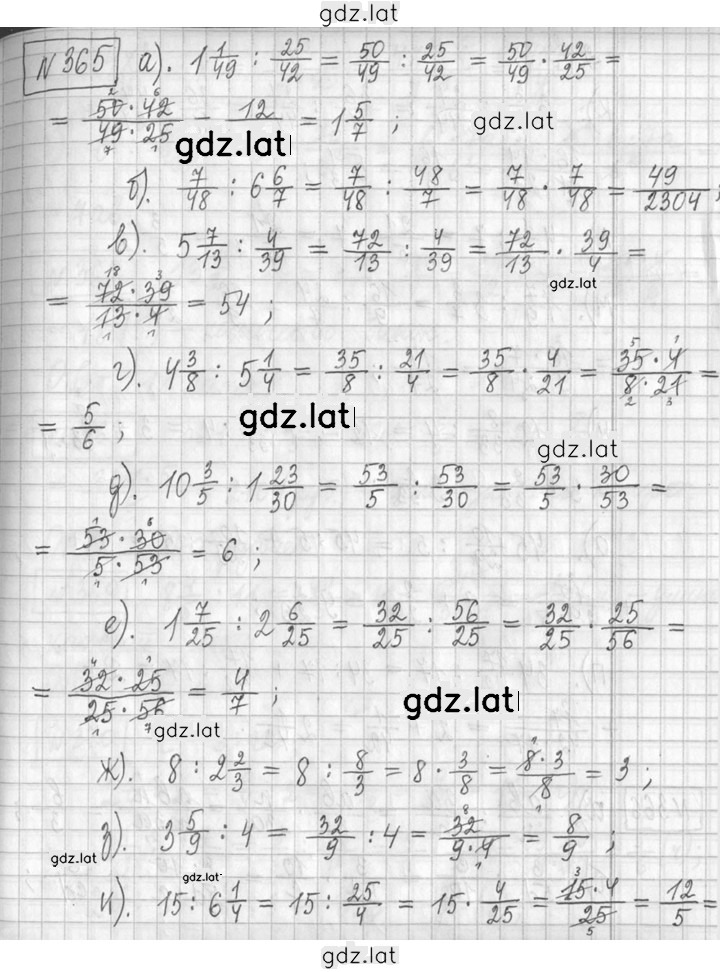 gdz.lat
N 365 а). 1 1/49 : 25/42 = 50/49 : 25/42 = 50/49 · 42/25 =
= 50 · 42 / 49 · 25 - 12/ = 1 5/7 ; gdz.lat
2 6 7 1
gdz.lat
б). 7/48 : 6 6/7 = 7/48 : 48/7 = 7/48 · 7/48 = 49/2304 ;
в). 5 7/13 : 4/39 = 72/13 : 4/39 = 72/13 · 39/4 =
gdz.lat
= 72 · 39 / 13 · 4 = 54 ;
18 3 1 1
г). 4 3/8 : 5 1/4 = 35/8 : 21/4 = 35/8 · 4/21 = 35 · 4 / 8 · 21 =
5 1 2 3
= 5/6 ; gdz.lat
gdz.lat
д). 10 3/5 : 1 23/30 = 53/5 : 53/30 = 53/5 · 30/53 =
= 53 · 30 / 5 · 53 = 6 ;
1 6 1 1
е). 1 7/25 : 2 6/25 = 32/25 : 56/25 = 32/25 · 25/56 =
= 32 · 25 / 25 · 56 = 4/7 ; gdz.lat
4 1 1 7
gdz.lat
ж). 8 : 2 2/3 = 8 : 8/3 = 8 · 3/8 = 8 · 3 / 8 = 3 ;
1 1
з). 3 5/9 : 4 = 32/9 : 4 = 32 / 9 · 4 = 8/9 ;
8 1
gdz.lat
gdz.lat
и). 15 : 6 1/4 = 15 : 25/4 = 15 · 4/25 = 15 · 4 / 25 = 12/5 =
3 5
gdz.lat